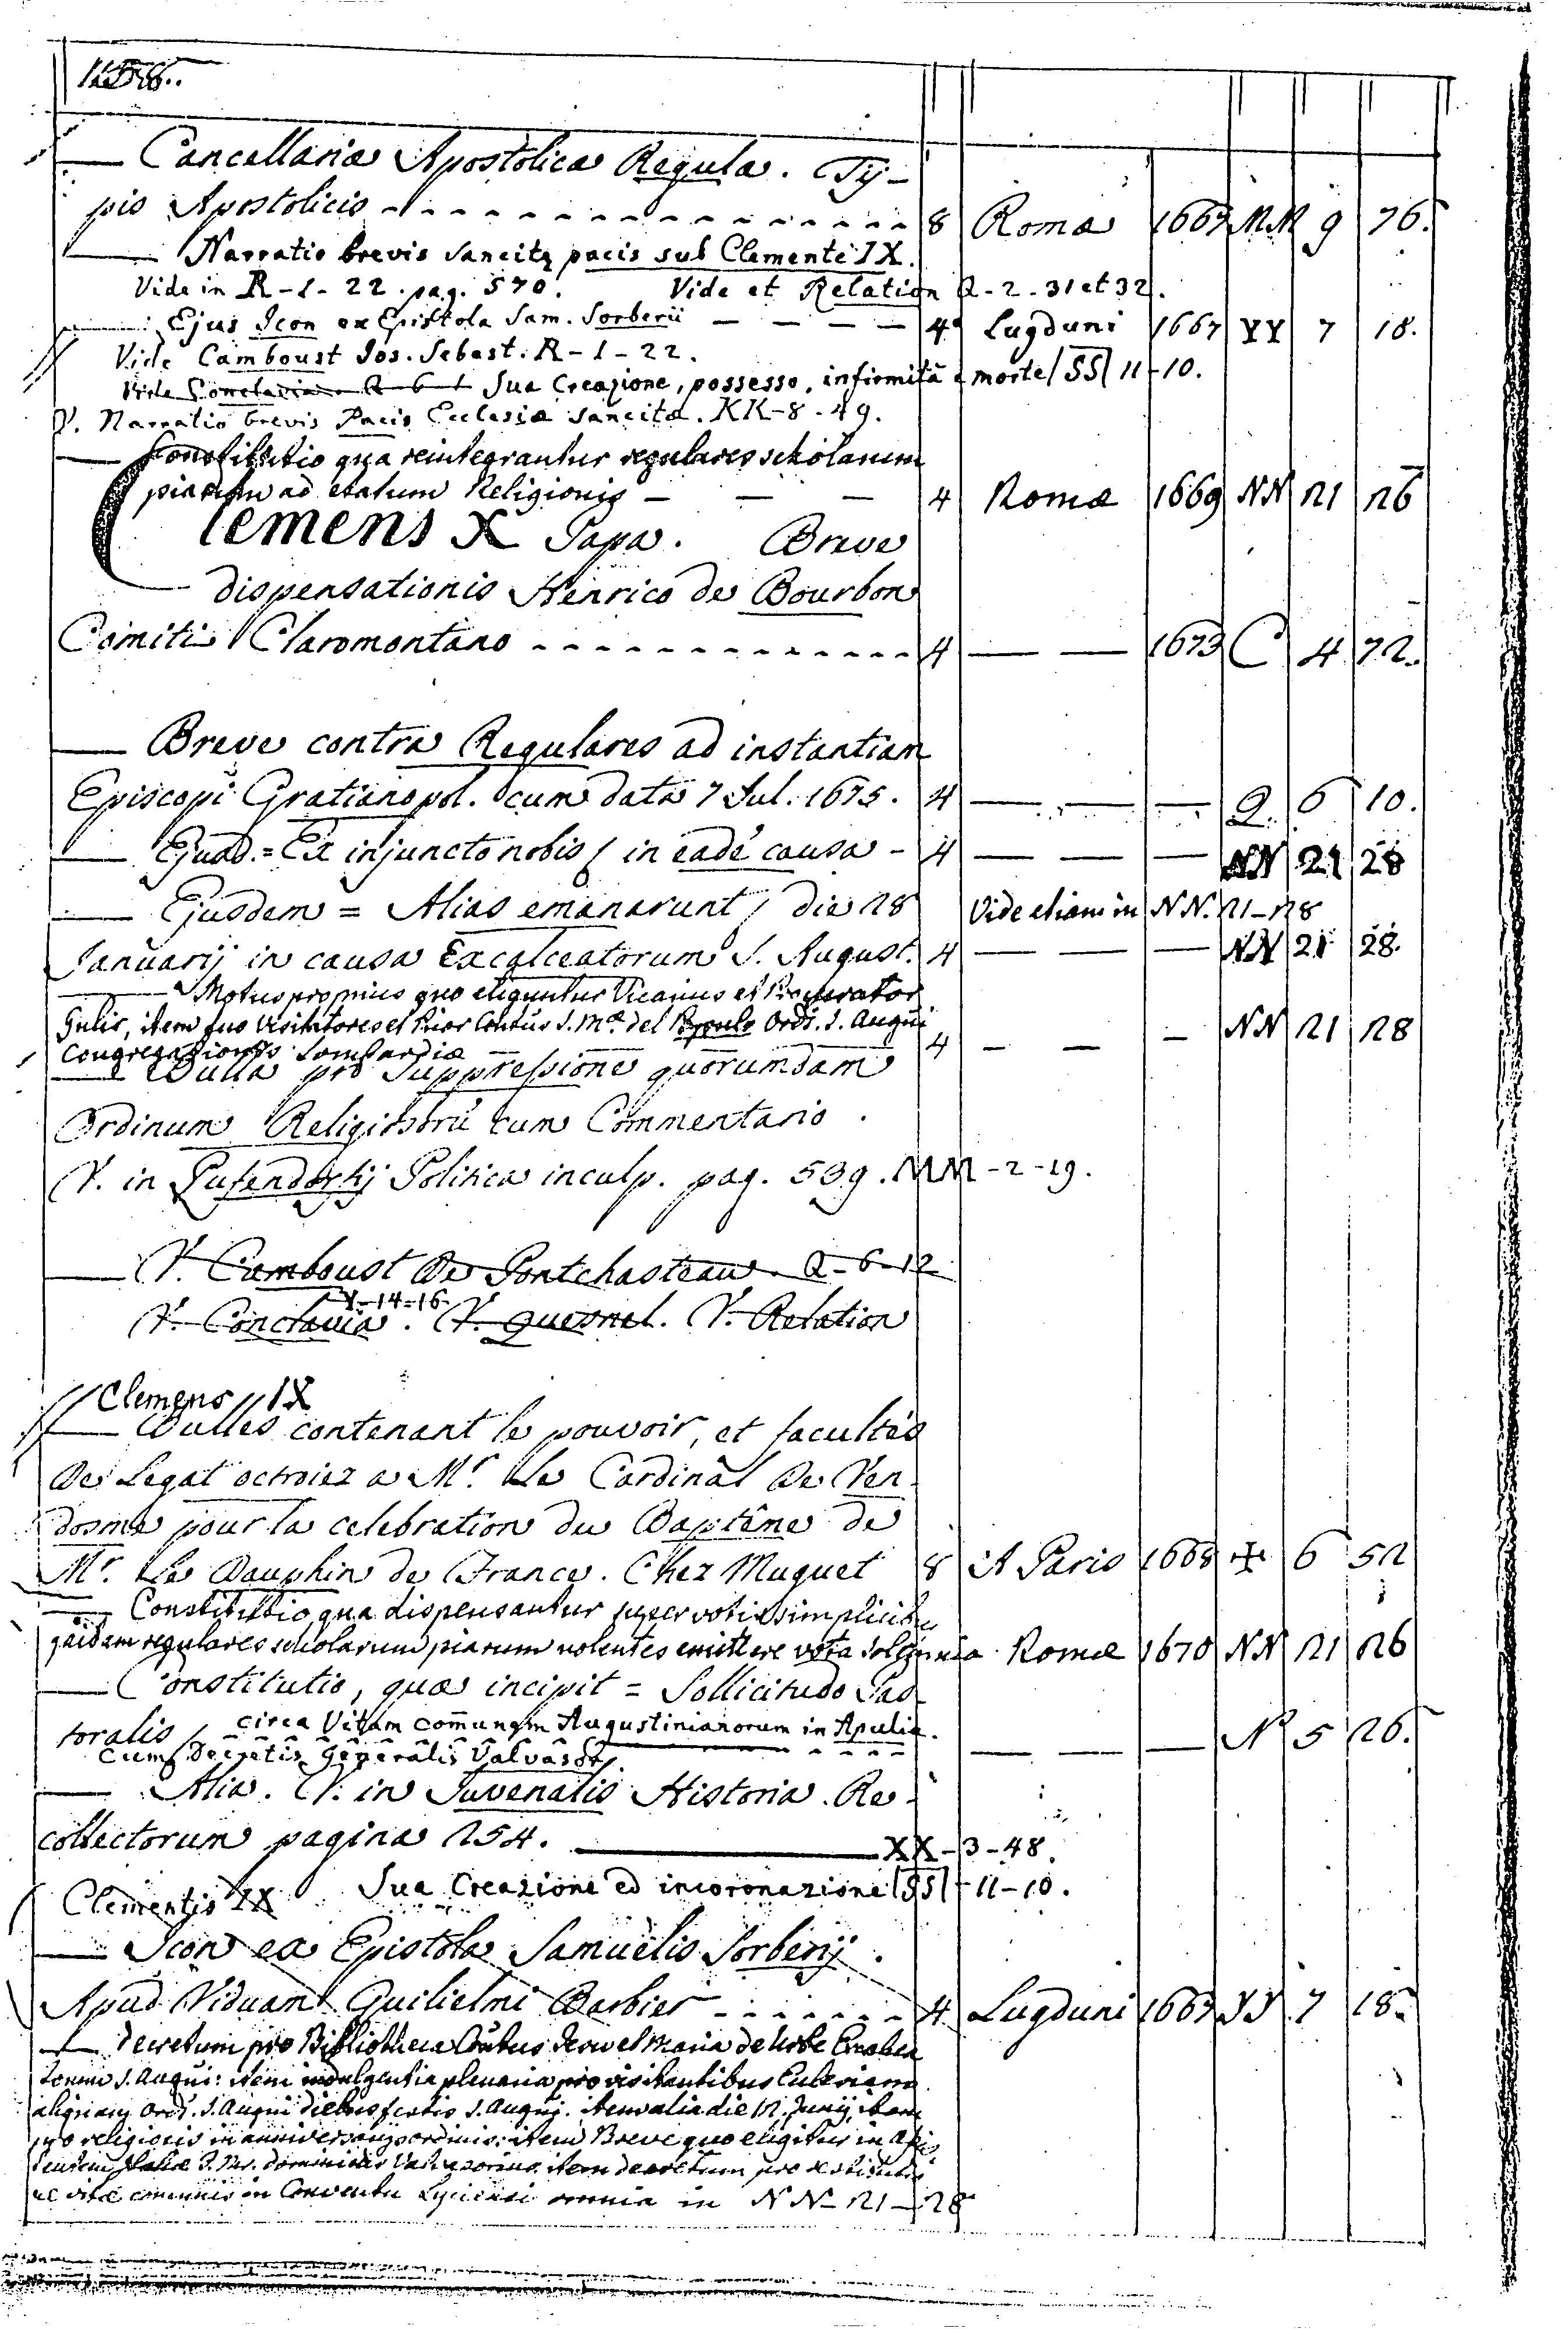 — Cancellariæ Apostolicæ Regulæ. Ty-
pis Apostolicis - - - 8 Romæ 1667 MM 9 76.
— Narratio brevis sancitæ pacis sub Clemente IX.
Vide in R-1-22. pag. 570. Vide et Relation Q-2-31 et 32.
— Ejus Icon ex Epistola Sam. Sorberii — — — — 4 Lugduni 1667 YY 7 18.
Vide Camboust Jos. Sebast. R-1-22.
Vide Conclavia. Sua Creazione, possesso, infirmità e morte/SS/11-10.
V. Narratio brevis Pacis Ecclesiæ sancitæ. KK-8-49.
— Constitutio qua reintegrantur regulares scholarum
piarum ad statum Religionis — — — 4 Romæ 1669 NN 21 26
Clemens X Papa. Breve
dispensationis Henrico de Bourbon
Comiti Claromontano - - - 4 — — 1673 C 4 72.
— Breve contra Regulares ad instantiam
Episcopi Gratianopol. cum data 7 Jul. 1675. 4 — — — Q. 6 10.
— Ejusd. = Ex injuncto nobis / in eadē causa - 4 — — — NN 21 28
— Ejusdem = Alias emanarunt / die 28 Vide etiam in NN. 21-28
Januarij in causa Excalceatorum S. August. 4 — — — NN 21 28.
— Motus proprius quo eliguntur Vicarius et Procurator
Gñlis, item duo Visitatores et Prior Cōntus S. Mᵃ. del Popolo Ord. S. Augñi
Congregationis Lombardiæ 4 — — — NN 21 28
— Bulla pro suppressione quorumdam
Ordinum Religiosorū cum Commentario.
V. in Pufendorfij Politica inculp. pag. 539. MM-2-19.
— V. Camboust de Pontchasteau. Q-6-12
Y-14-16.
V. Conclavia. V. Quesnel. V. Relation
Clemens IX
— Bulles contenant le pouvoir, et facultés
de Legat octroiez a Mʳ. Le Cardinal de Ven
dosme pour la celebration du Baptême de
Mʳ. Le Dauphin de France. Chez Muguet 8 A Paris 1668 ✠ 6 52
— Constitutio qua dispensantur super votis simplicibus
quidam regulares scholarum piarum volentes emittere vota solemnia Romæ 1670 NN 21 26
— Constitutio, quæ incipit = Sollicitudo Pas
toralis / circa Vitam com̄unem Augustinianorum in Apulia.
cum Decretis Generalis Valvasorj. — — — N 5 26.
— Alia. V. in Juvenalis Historia Re-
collectorum pagina 254. — XX-3-48.
Clementis IX Sua Creazione ed incoronazione/SS/-11-10.
— Icon ex Epistola Samuelis Sorberij.
Apud Viduam Guilielmi Barbier - - - 4 Lugduni 1667 YY 7 18.
— Decretum pro Bibliotheca Cōntus Jesu et Maria de Urbe
S. Augñi: item indulgentia plenaria pro visitantibus Ecclesiam
Ord. S. Augñi diebus festis S. Augñj. item alia die 12. Junij, item
pro religiosis in anniversarijs ordinis: item Breve quo eligitur in
item decretum pro
vitæ communis in Conventu omnia in NN-21-28